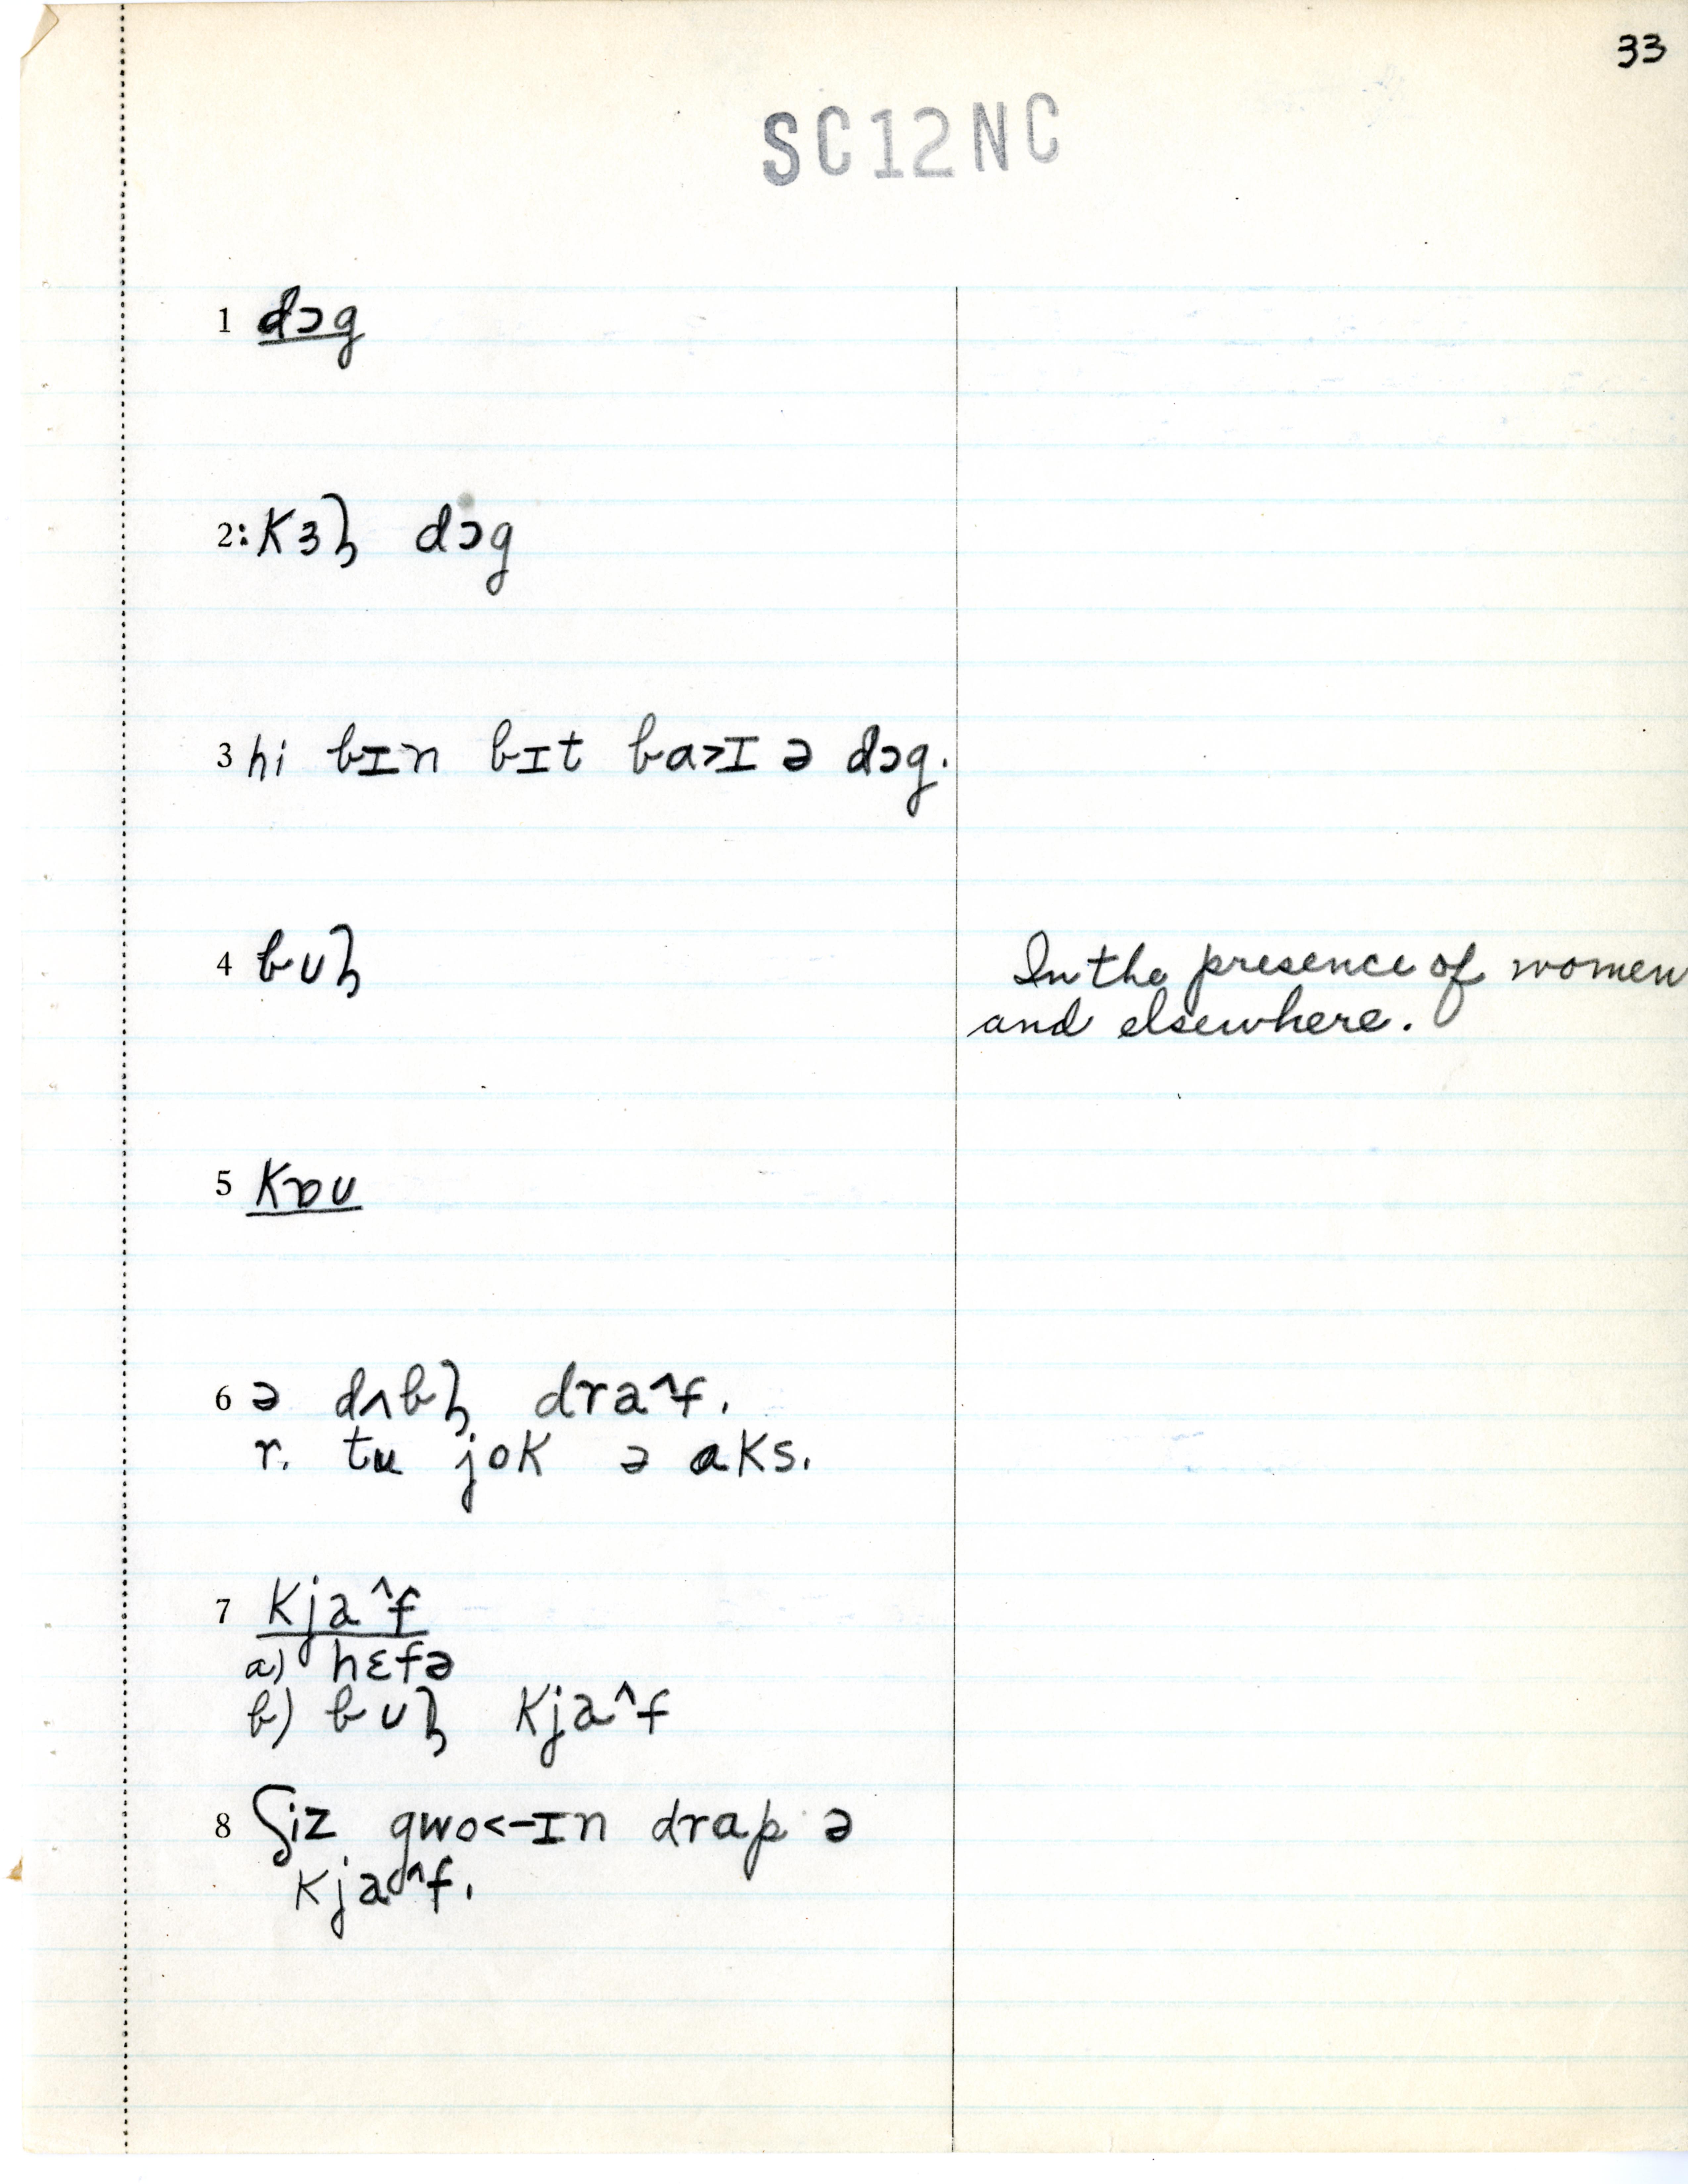 33
SC12NC
1 dɔg
2: Kɜꞎ dɔg
3 hi bɪn bɪt ba>ɪ ə dɔg.
4 bʊꞎ In the presence of women
and elsewhere.
5 Kɒʊ
6 ə dʌbꞎ dra^f.
r. tu jok ə aks.
7 Kja^f
a) hɛfə
b) bʊꞎ Kja^f
8 ʃiz gwo<-ɪn drap ə
Kja^f.